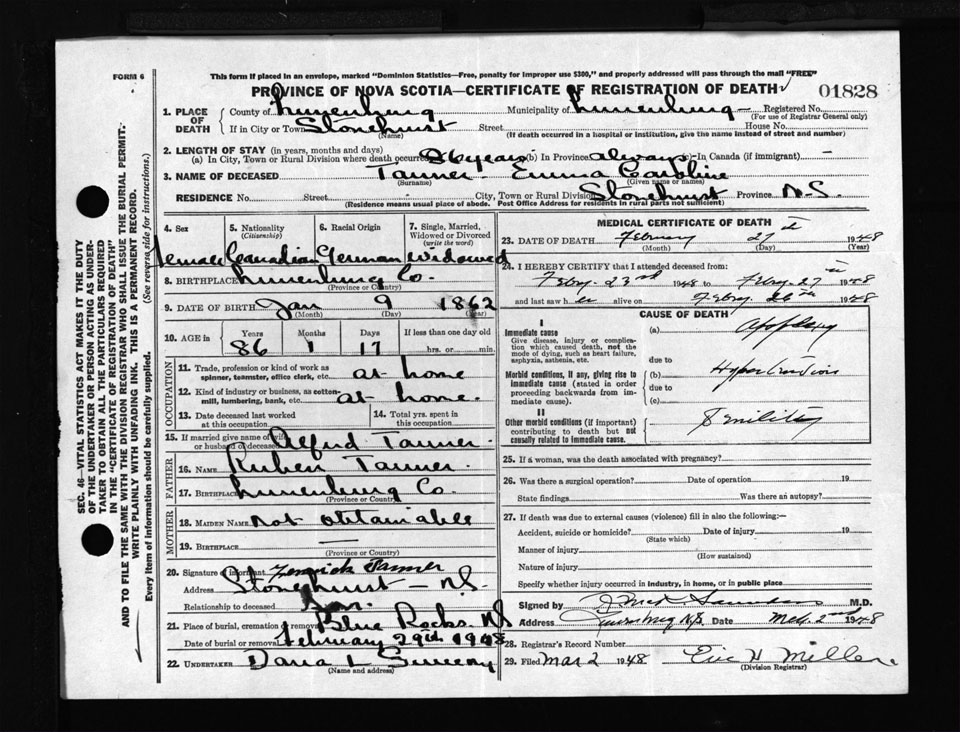 FORM 6
This form if placed in an envelope, marked "Dominion Statistics—Free, penalty for improper use $300," and properly addressed will pass through the mail "FREE"
PROVINCE OF NOVA SCOTIA—CERTIFICATE OF REGISTRATION OF DEATH
01828
1. PLACE OF DEATH
County of Lunenburg Municipality of Lunenburg Registered No.
(For use of Registrar General only)
If in City or Town Stonehurst Street House No.
(Name) (If death occurred in a hospital or institution, give the name instead of street and number)
2. LENGTH OF STAY (in years, months and days)
(a) In City, Town or Rural Division where death occurred 86 years (b) In Province always (c) In Canada (if immigrant) —
3. NAME OF DECEASED Tanner Emma Caroline
(Surname) (Given name or names)
RESIDENCE No. Street City, Town or Rural Division Stonehurst Province N.S.
(Residence means usual place of abode. Post Office Address for residents in rural parts not sufficient)
4. Sex 5. Nationality (Citizenship) 6. Racial Origin 7. Single, Married, Widowed or Divorced (write the word)
Female Canadian German Widowed
8. BIRTHPLACE Lunenburg Co.
(Province or Country)
9. DATE OF BIRTH Jan 9 1862
(Month) (Day) (Year)
10. AGE in Years Months Days If less than one day old
86 1 17 hrs. or min.
OCCUPATION
11. Trade, profession or kind of work as spinner, teamster, office clerk, etc. at home
12. Kind of industry or business, as cotton mill, lumbering, bank, etc. at home.
13. Date deceased last worked at this occupation
14. Total yrs. spent in this occupation
15. If married give name of wife or husband of deceased Alfred Tanner.
FATHER
16. NAME Ruben Tanner.
17. BIRTHPLACE Lunenburg Co.
(Province or Country)
MOTHER
18. MAIDEN NAME not obtainable
19. BIRTHPLACE —
(Province or Country)
20. Signature of informant Fenwick Tanner
Address Stonehurst N.S.
Relationship to deceased Son.
21. Place of burial, cremation or removal Blue Rocks. N.S
Date of burial or removal February 29th 1948
22. UNDERTAKER Dana L Sweeny
(Name and address)
MEDICAL CERTIFICATE OF DEATH
23. DATE OF DEATH February 27 1948
(Month) (Day) (Year)
24. I HEREBY CERTIFY that I attended deceased from:
Febry. 23rd 1948 to Febry. 27 1948
and last saw her alive on Febry. 26 1948
CAUSE OF DEATH
I
Immediate cause
Give disease, injury or complication which caused death, not the mode of dying, such as heart failure, asphyxia, asthenia, etc.
(a) Apoplexy
due to
Morbid conditions, if any, giving rise to immediate cause (stated in order proceeding backwards from immediate cause).
(b) Hypertension
due to
(c)
II
Other morbid conditions (if important) contributing to death but not causally related to immediate cause.
Senility
25. If a woman, was the death associated with pregnancy?
26. Was there a surgical operation? Date of operation 19
State findings Was there an autopsy?
27. If death was due to external causes (violence) fill in also the following:—
Accident, suicide or homicide? Date of injury 19
(State which)
Manner of injury
(How sustained)
Nature of injury
Specify whether injury occurred in industry, in home, or in public place
Signed by Saunders M.D.
Address Lunenburg N.S. Date Mch. 2nd 1948
28. Registrar's Record Number
29. Filed Mar 2 1948 Eric H Miller
(Division Registrar)
SEC. 46—VITAL STATISTICS ACT MAKES IT THE DUTY
OF THE UNDERTAKER OR PERSON ACTING AS UNDERTAKER TO OBTAIN ALL THE PARTICULARS REQUIRED
IN THE "CERTIFICATE OF REGISTRATION OF DEATH"
AND TO FILE THE SAME WITH THE DIVISION REGISTRAR WHO SHALL ISSUE THE BURIAL PERMIT.
WRITE PLAINLY WITH UNFADING INK. THIS IS A PERMANENT RECORD.
Every item of information should be carefully supplied. (See reverse side for instructions.)